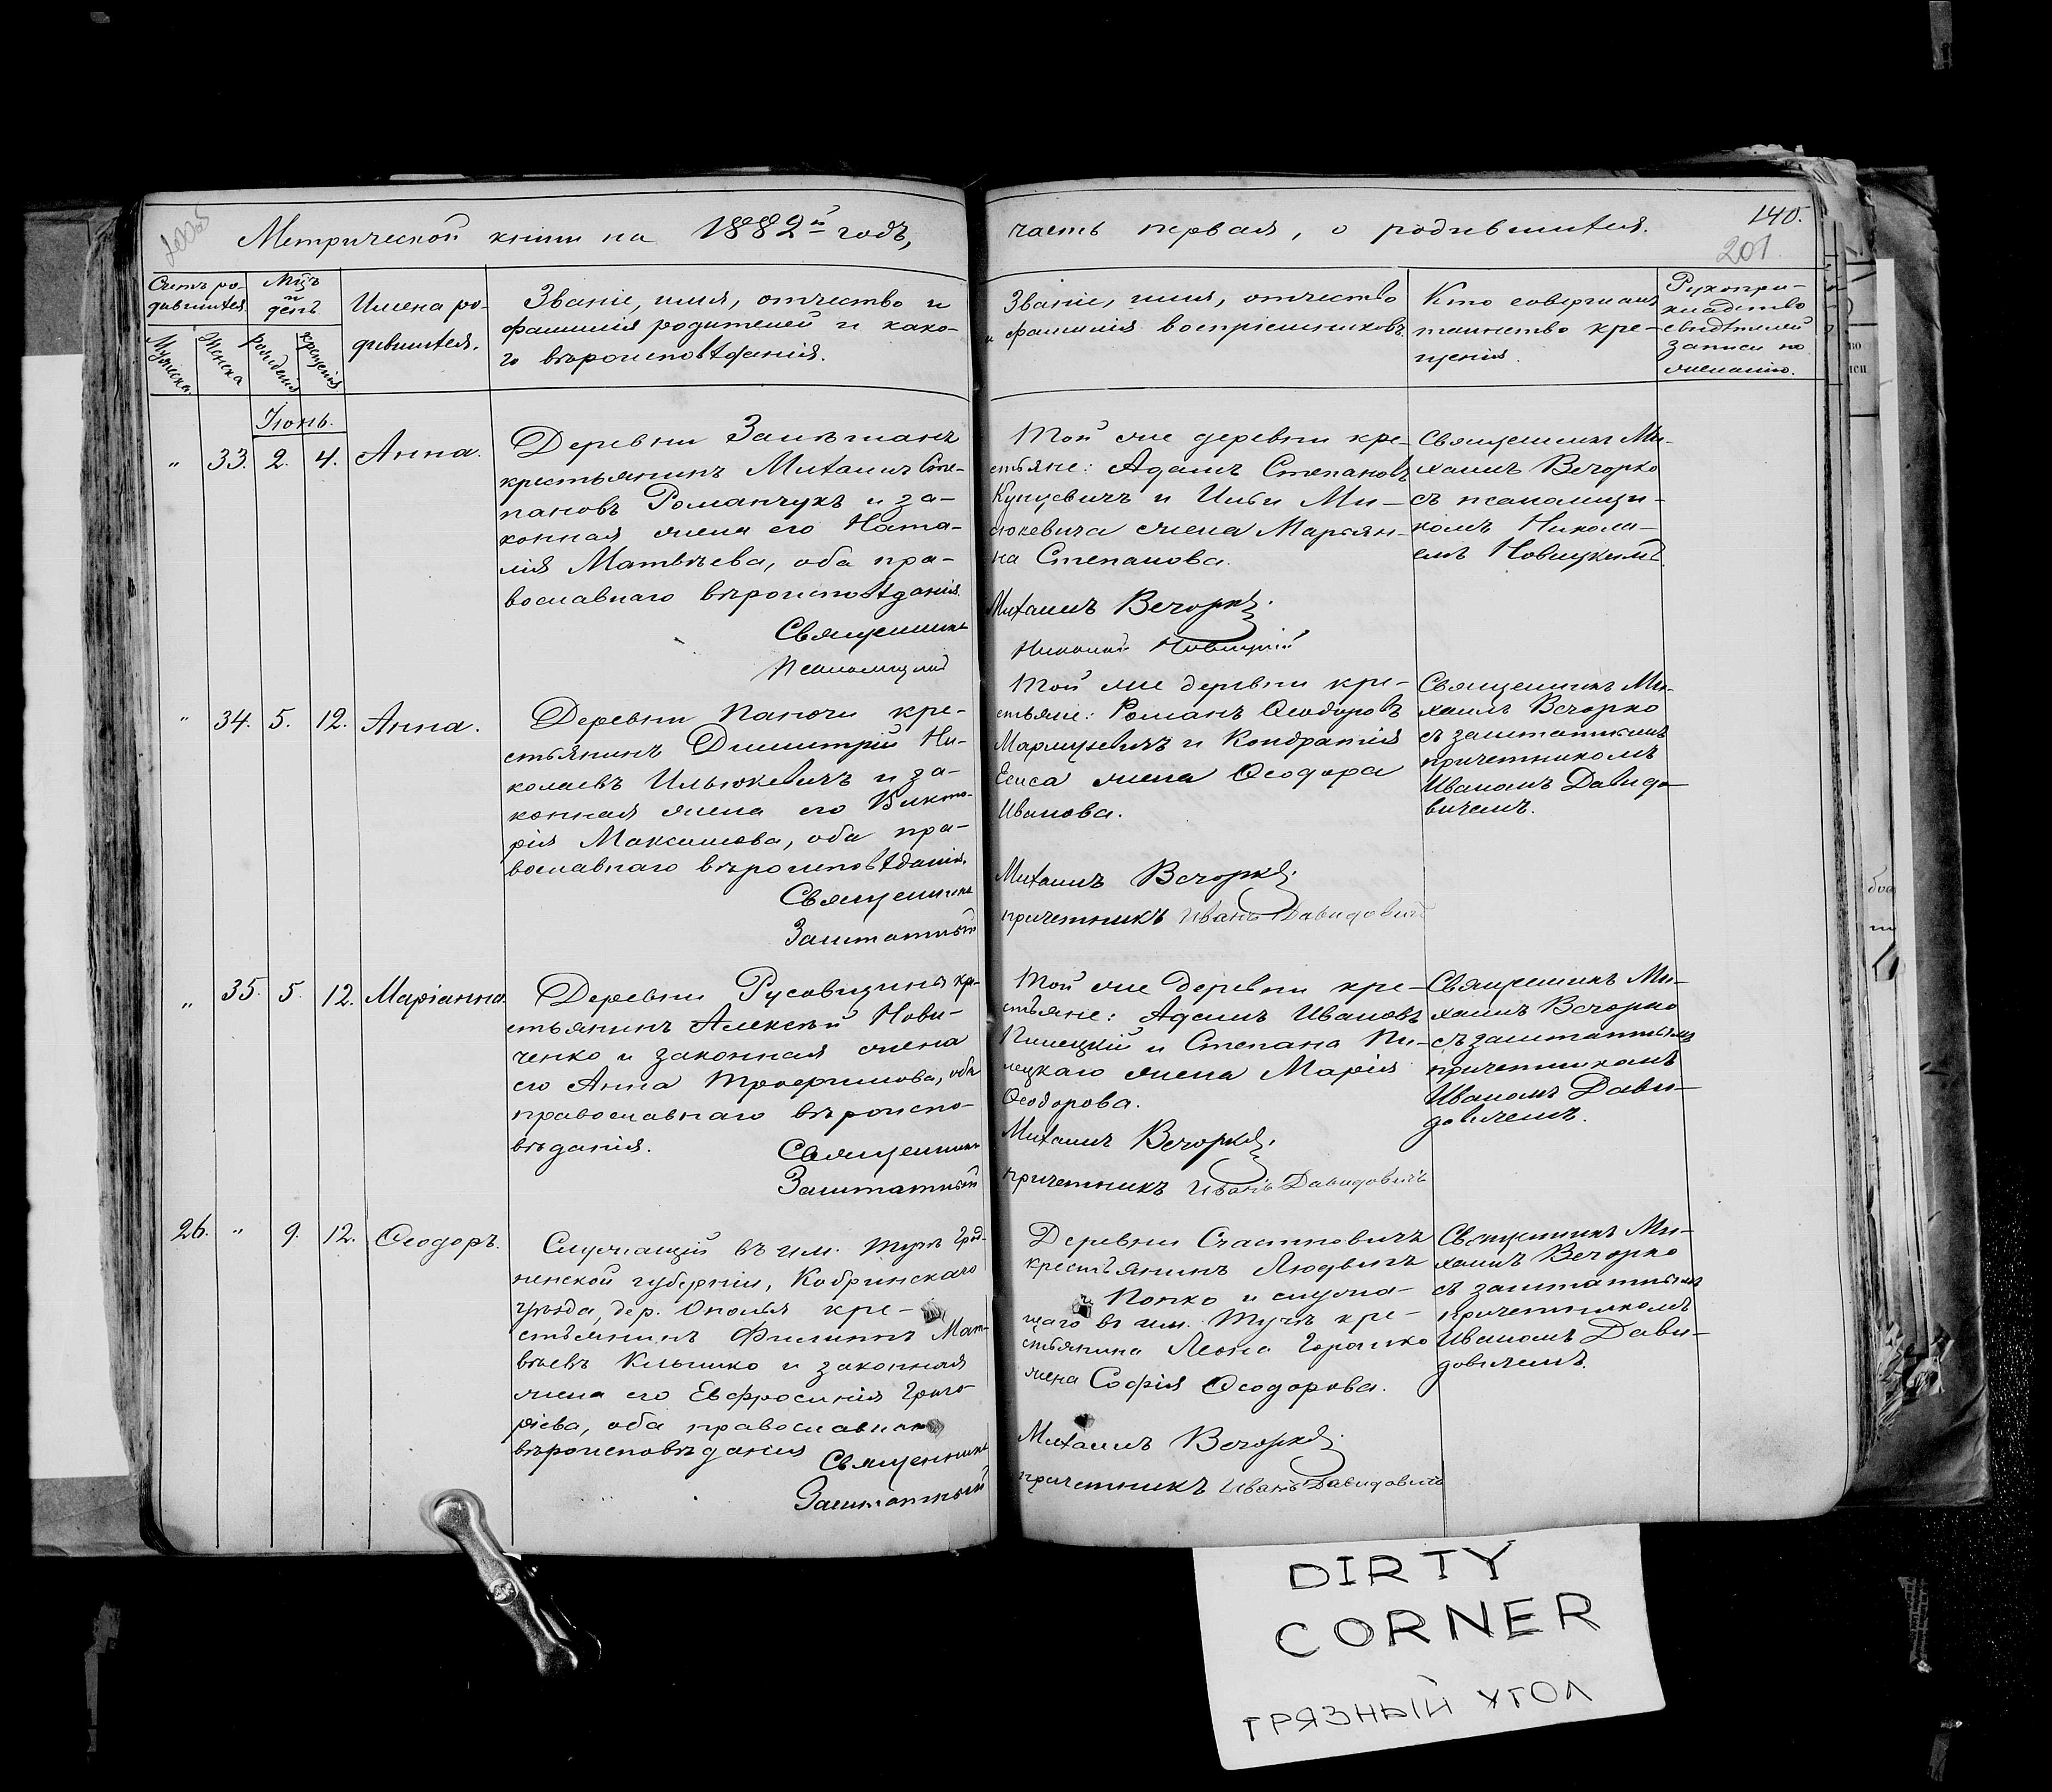 Метрической книги на 1882й годъ,
часть первая, о родившихся.
140.
201.
Счетъ ро-
дившихся
Мужеска
Женска
Мѣсъ
и
день
рожденія
крещенія
Имена ро-
дившихся.
Званіе, имя, отчество и
фамилія родителей и како-
го вѣроисповѣданія.
Званіе, имя, отчество
и фамилія воспріемниковъ.
Кто совершалъ
таинство кре-
щенія.
Рукопри-
кладство
свидѣтелей
записи по
желанію.
Іюнь.
„ 33. 2. 4. Анна.
Деревни
крестьянинъ Михаилъ Сте-
пановъ Романчукъ и за-
конная жена его Ната-
лія Матвѣева, оба пра-
вославнаго вѣроисповѣданія.
Священникъ
Псаломщикъ
Той же деревни кре-
стьяне: Адамъ Степановъ
Куцевичъ и Ми-
сюкевича жена Марьян-
на Степанова.
Михаилъ Вечорко.
Николай Новицкій
Священникъ Ми-
хаилъ Вечорко
съ псаломщи-
комъ Никола-
емъ Новицкимъ.
„ 34. 5. 12. Анна.
Деревни Панючи кре-
стьянинъ Димитрій Ни-
колаевъ Ильюкевичъ и за-
конная жена его Викто-
рія Максимова, оба пра-
вославнаго вѣроисповѣданія.
Священникъ
Заштатный
Той же деревни кре-
стьяне: Романъ Ѳеодоровъ
и Кондратія
жена Ѳеодора
Иванова.
Михаилъ Вечорко.
причетникъ Иванъ Давидовичъ
Священникъ Ми-
хаилъ Вечорко
съ заштатнымъ
причетникомъ
Иваномъ Давидо-
вичемъ.
„ 35. 5. 12. Маріанна.
Деревни Русовщина кре-
стьянинъ Алексѣй Нови-
ченко и законная жена
его Анна Трофимова, оба
православнаго вѣроиспо-
вѣданія.
Священникъ
Заштатный
Той же деревни кре-
стьяне: Адамъ Ивановъ
Пилецкій и Степана Пи-
лецкаго жена Марія
Ѳеодорова.
Михаилъ Вечорко.
причетникъ Иванъ Давидовичъ
Священникъ Ми-
хаилъ Вечорко
съ заштатнымъ
причетникомъ
Иваномъ Дави-
довичемъ.
26. „ 9. 12. Ѳеодоръ.
Служащій въ им. Тучѣ Грод-
ненской губерніи, Кобринскаго
уѣзда, дер. Ополья кре-
стьянинъ Филиппъ Мат-
вѣевъ Климко и законная
жена его Евфросинія Григо-
ріева, оба православнаго
вѣроисповѣданія
Священникъ
Заштатный
Деревни Счастновичъ
крестьянинъ Людвигъ
Попко и служа-
щаго въ им. Тучѣ кре-
стьянина Леона Горошко
жена Софія Ѳеодорова.
Михаилъ Вечорко.
причетникъ Иванъ Давидовичъ
Священникъ Ми-
хаилъ Вечорко
съ заштатнымъ
причетникомъ
Иваномъ Дави-
довичемъ.
DIRTY
CORNER
ГРЯЗНЫЙ УГОЛ